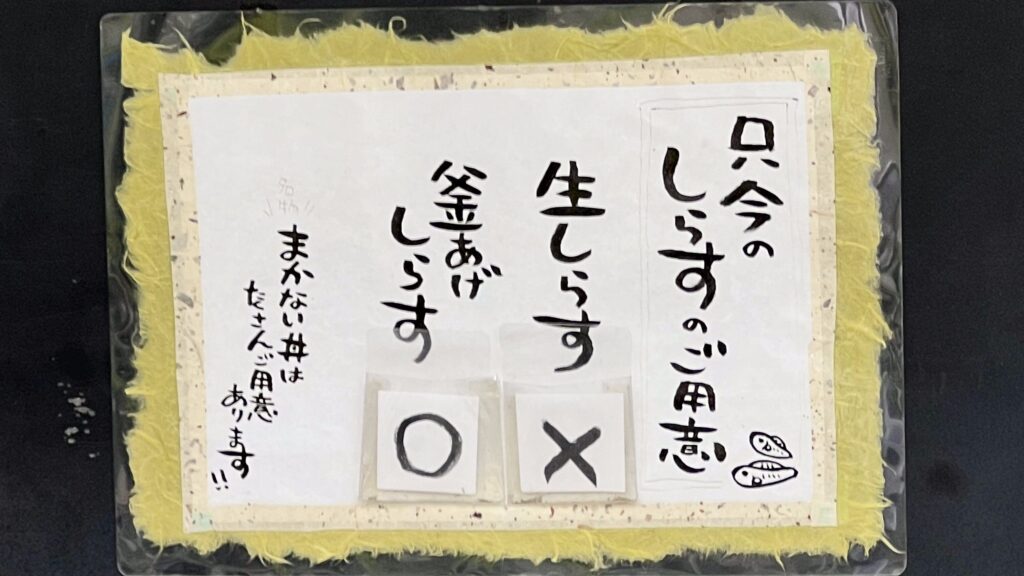 只今の
しらすのご用意
生しらす
×
釜あげ
しらす
○
まかない丼は
たくさんご用意
あります!!